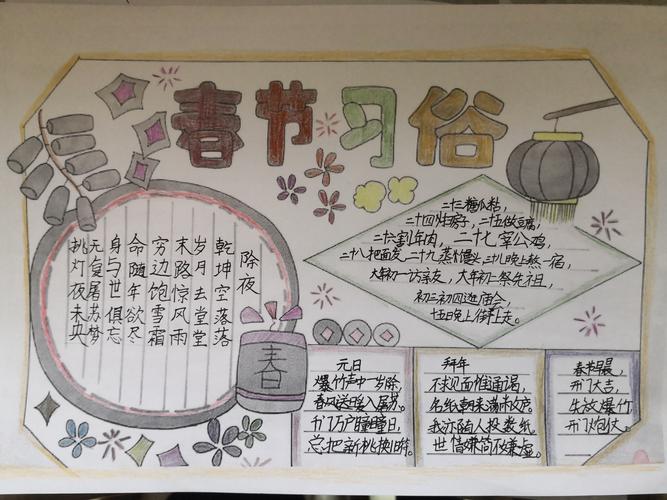 春节习俗
除夜
乾坤空落落
岁月去堂堂
末路惊风雨
穷边饱雪霜
命随年欲尽
身与世俱忘
无复屠苏梦
挑灯夜未央
春
二十三糖瓜粘,
二十四扫房子,二十五做豆腐,
二十六割年肉,二十七宰公鸡,
二十八把面发,二十九蒸馒头,三十儿晚上熬一宿,
大年初一访亲友,大年初二祭先祖,
初三初四逛庙会,
十五晚上街上走。
元日
爆竹声中一岁除,
春风送暖入屠苏。
千门万户曈曈日,
总把新桃换旧符。
拜年
不求见面惟通谒,
名纸朝来满敝庐。
我亦随人投数纸,
世情嫌简不嫌虚。
春节早晨,
开门大吉,
先放爆竹
开门炮仗。